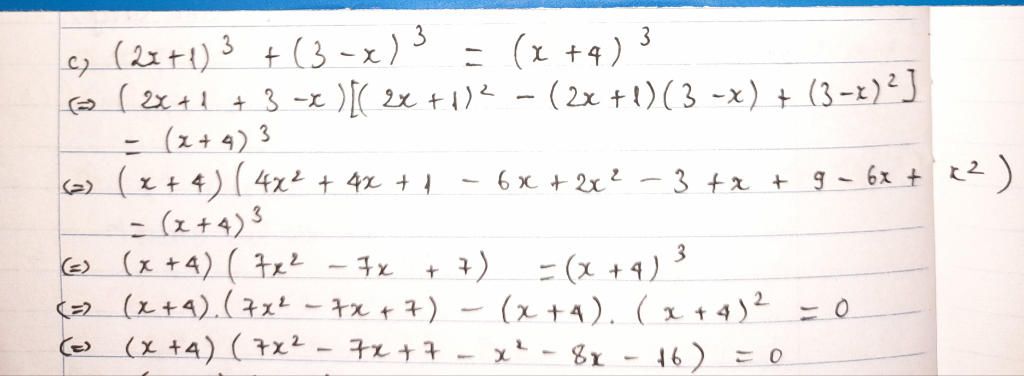 c) (2x+1)³ + (3-x)³ = (x+4)³
(=) (2x+1+3-x)[(2x+1)² - (2x+1)(3-x) + (3-x)²]
= (x+4)³
(=) (x+4)(4x² + 4x + 1 - 6x + 2x² - 3 + x + 9 - 6x + x²)
= (x+4)³
(=) (x+4)(7x² - 7x + 7) = (x+4)³
(=) (x+4).(7x² - 7x + 7) - (x+4).(x+4)² = 0
(=) (x+4)(7x² - 7x + 7 - x² - 8x - 16) = 0